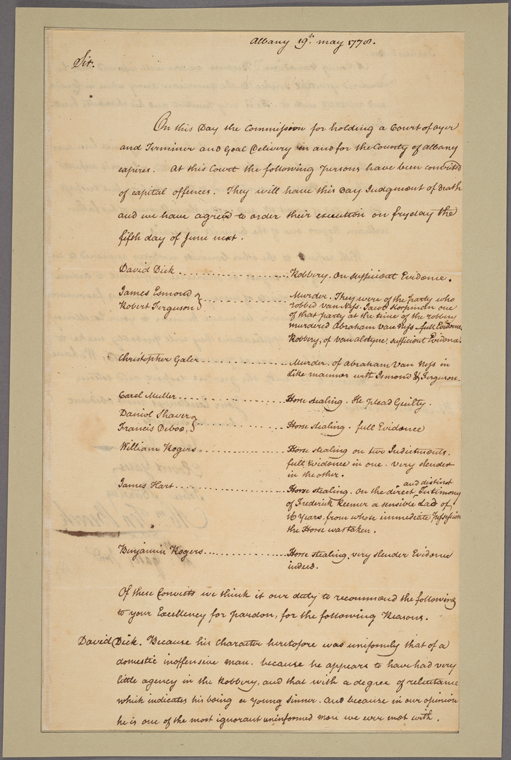 Albany 19th may 1778.
Sir.
On this Day the Commission for holding a Court of oyer
and Terminer and Goal Delivery in and for the County of Albany
expires. At this Court the following Persons have been convicted
of capital offences. They will have this Day Judgment of Death
and we have agreed to order their execution on fryday the
fifth day of June next.
David Dick .......... Robbery. On sufficient Evidence.
James Esmond
Robert Ferguson } .......... Murder. They were of the party who
robbed Van Ness. Jacob Kooplinder one
of that party at the time of the robbery
murdered Abraham Van Ness. full Evidence
Robbery, of Van alstyne, sufficient Evidence.
Christopher Galer .......... Murder, of Abraham Van Ness in
like manner with Esmond & Ferguson.
Carol Muller .......... Horse stealing. He plead Guilty.
Daniel Shaver
Francis Deboo } .......... Horse stealing. full Evidence
William Rogers .......... Horse stealing on two Indictments.
full Evidence in one. very slender
in the other.
James Hart .......... Horse stealing. on the direct and distinct Testimony
of Frederick Keemer a sensible Lad of
16 Years, from whose immediate Possession
the Horse was taken.
Benjamin Rogers .......... Horse stealing, very slender Evidence
indeed.
Of these Convicts we think it our duty to recommend the following
to your Excellency for pardon, for the following Reasons.
David Dick. Because his character heretofore was uniformly that of a
domestic inoffensive man. because he appears to have had very
little agency in the Robbery, and that with a degree of reluctance
which indicates his being a young Sinner. And because in our opinion
he is one of the most ignorant uninformed men we ever met with.